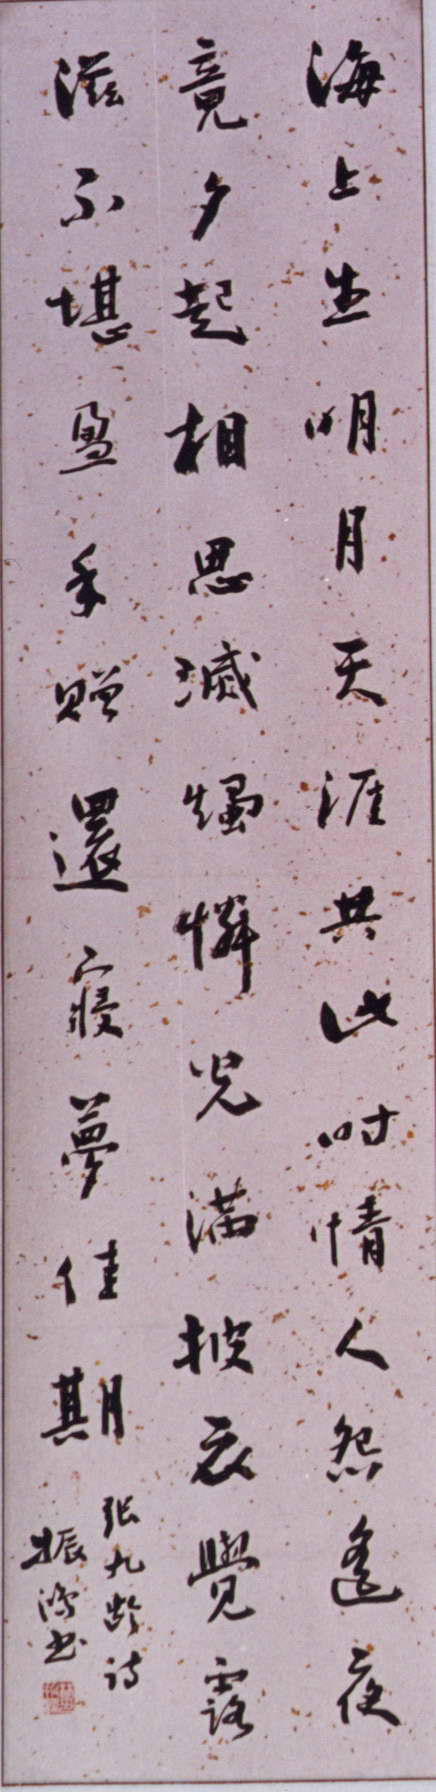 海上生明月天涯共此时情人怨遥夜
竟夕起相思滅燭憐光满披衣覺露
滋不堪盈手贈還寢夢佳期
张九龄诗
振 书